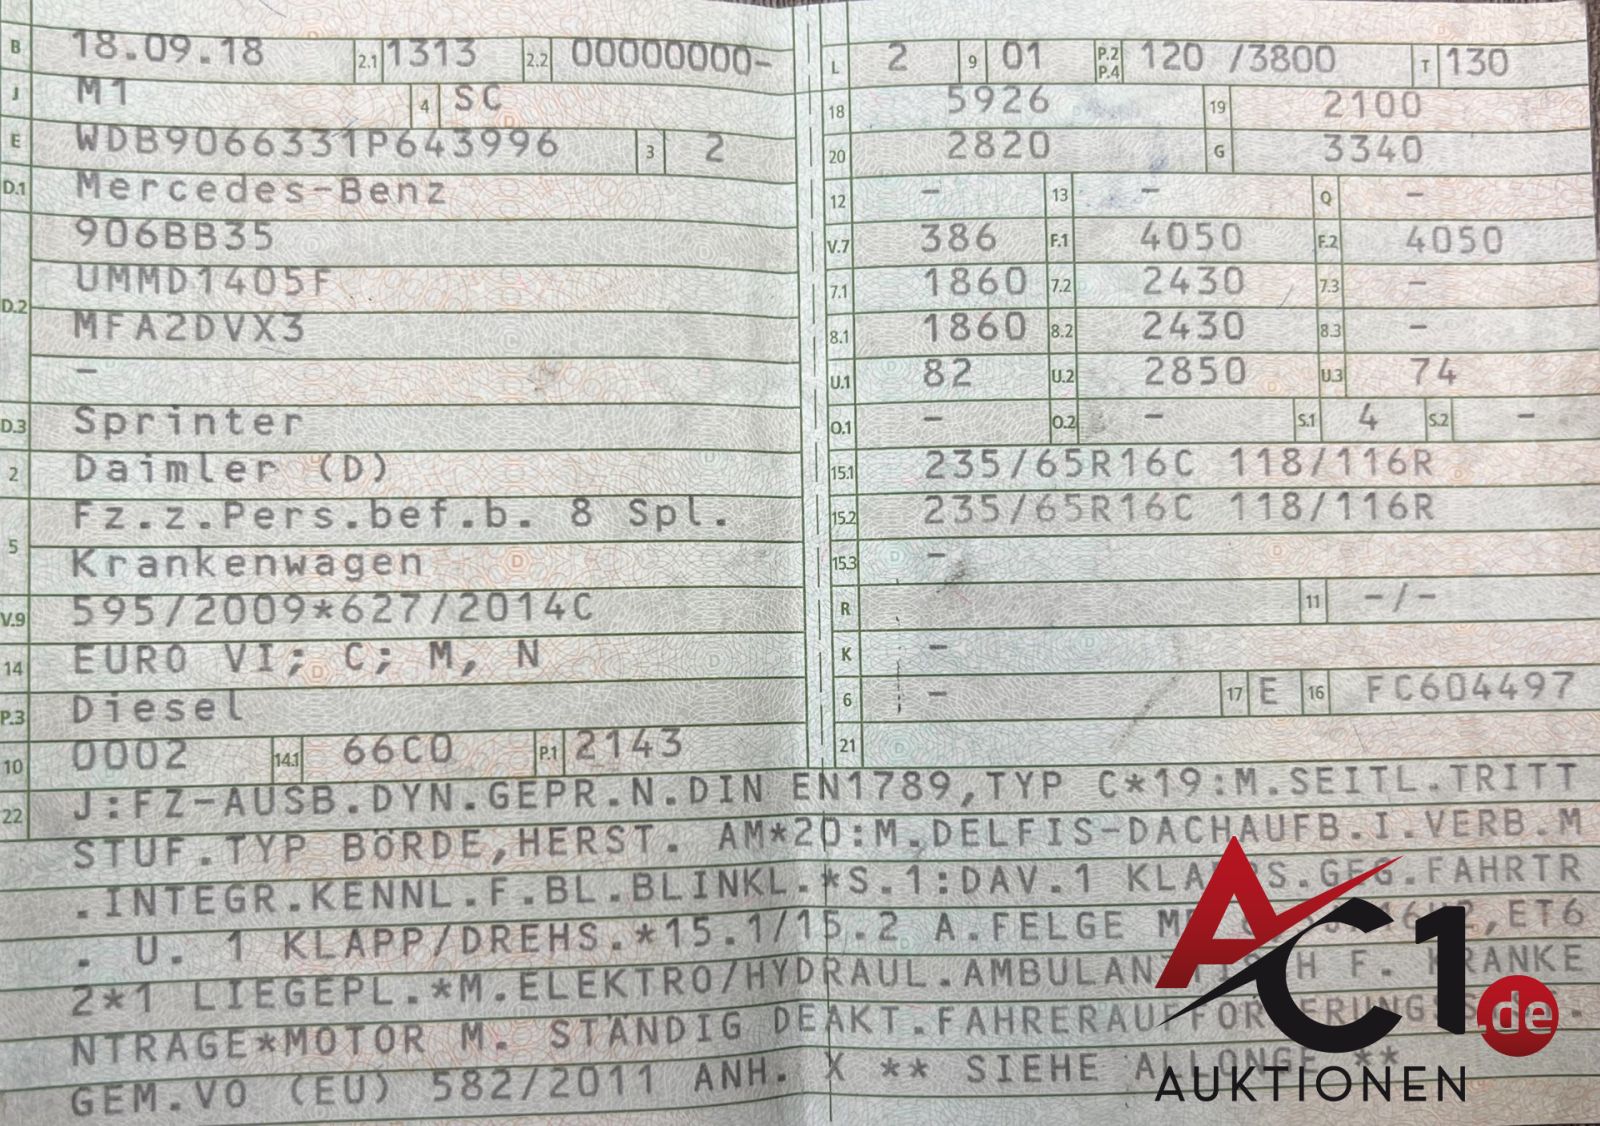 B 18.09.18 2.1 1313 2.2 00000000-
J M1 4 SC
E WDB9066331P643996 3 2
D.1 Mercedes-Benz
906BB35
D.2 UMMD1405F
MFA2DVX3
-
D.3 Sprinter
2 Daimler (D)
Fz.z.Pers.bef.b. 8 Spl.
5 Krankenwagen
V.9 595/2009*627/2014C
14 EURO VI; C; M, N
P.3 Diesel
10 0002 14.1 66C0 P.1 2143
L 2 9 01 P.2 P.4 120 /3800 T 130
18 5926 19 2100
20 2820 G 3340
12 - 13 - Q -
V.7 386 F.1 4050 F.2 4050
7.1 1860 7.2 2430 7.3 -
8.1 1860 8.2 2430 8.3 -
U.1 82 U.2 2850 U.3 74
O.1 - O.2 - S.1 4 S.2 -
15.1 235/65R16C 118/116R
15.2 235/65R16C 118/116R
15.3 -
R 11 -/-
K -
6 - 17 E 16 FC604497
21
22 J:FZ-AUSB.DYN.GEPR.N.DIN EN1789,TYP C*19:M.SEITL.TRITT
STUF.TYP BÖRDE,HERST. AM*20:M.DELFIS-DACHAUFB.I.VERB.M
.INTEGR.KENNL.F.BL.BLINKL.*S.1:DAV.1 KLAPPS.GEG.FAHRTR
. U. 1 KLAPP/DREHS.*15.1/15.2 A.FELGE ,ET6
2*1 LIEGEPL.*M.ELEKTRO/HYDRAUL.AMBULANZTISCH F. KRANKE
NTRAGE*MOTOR M. STÄNDIG DEAKT.FAHRERAUFFORDERUNGSSYST.
GEM.VO (EU) 582/2011 ANH. X ** SIEHE ALLONGE **
AC1.de
AUKTIONEN